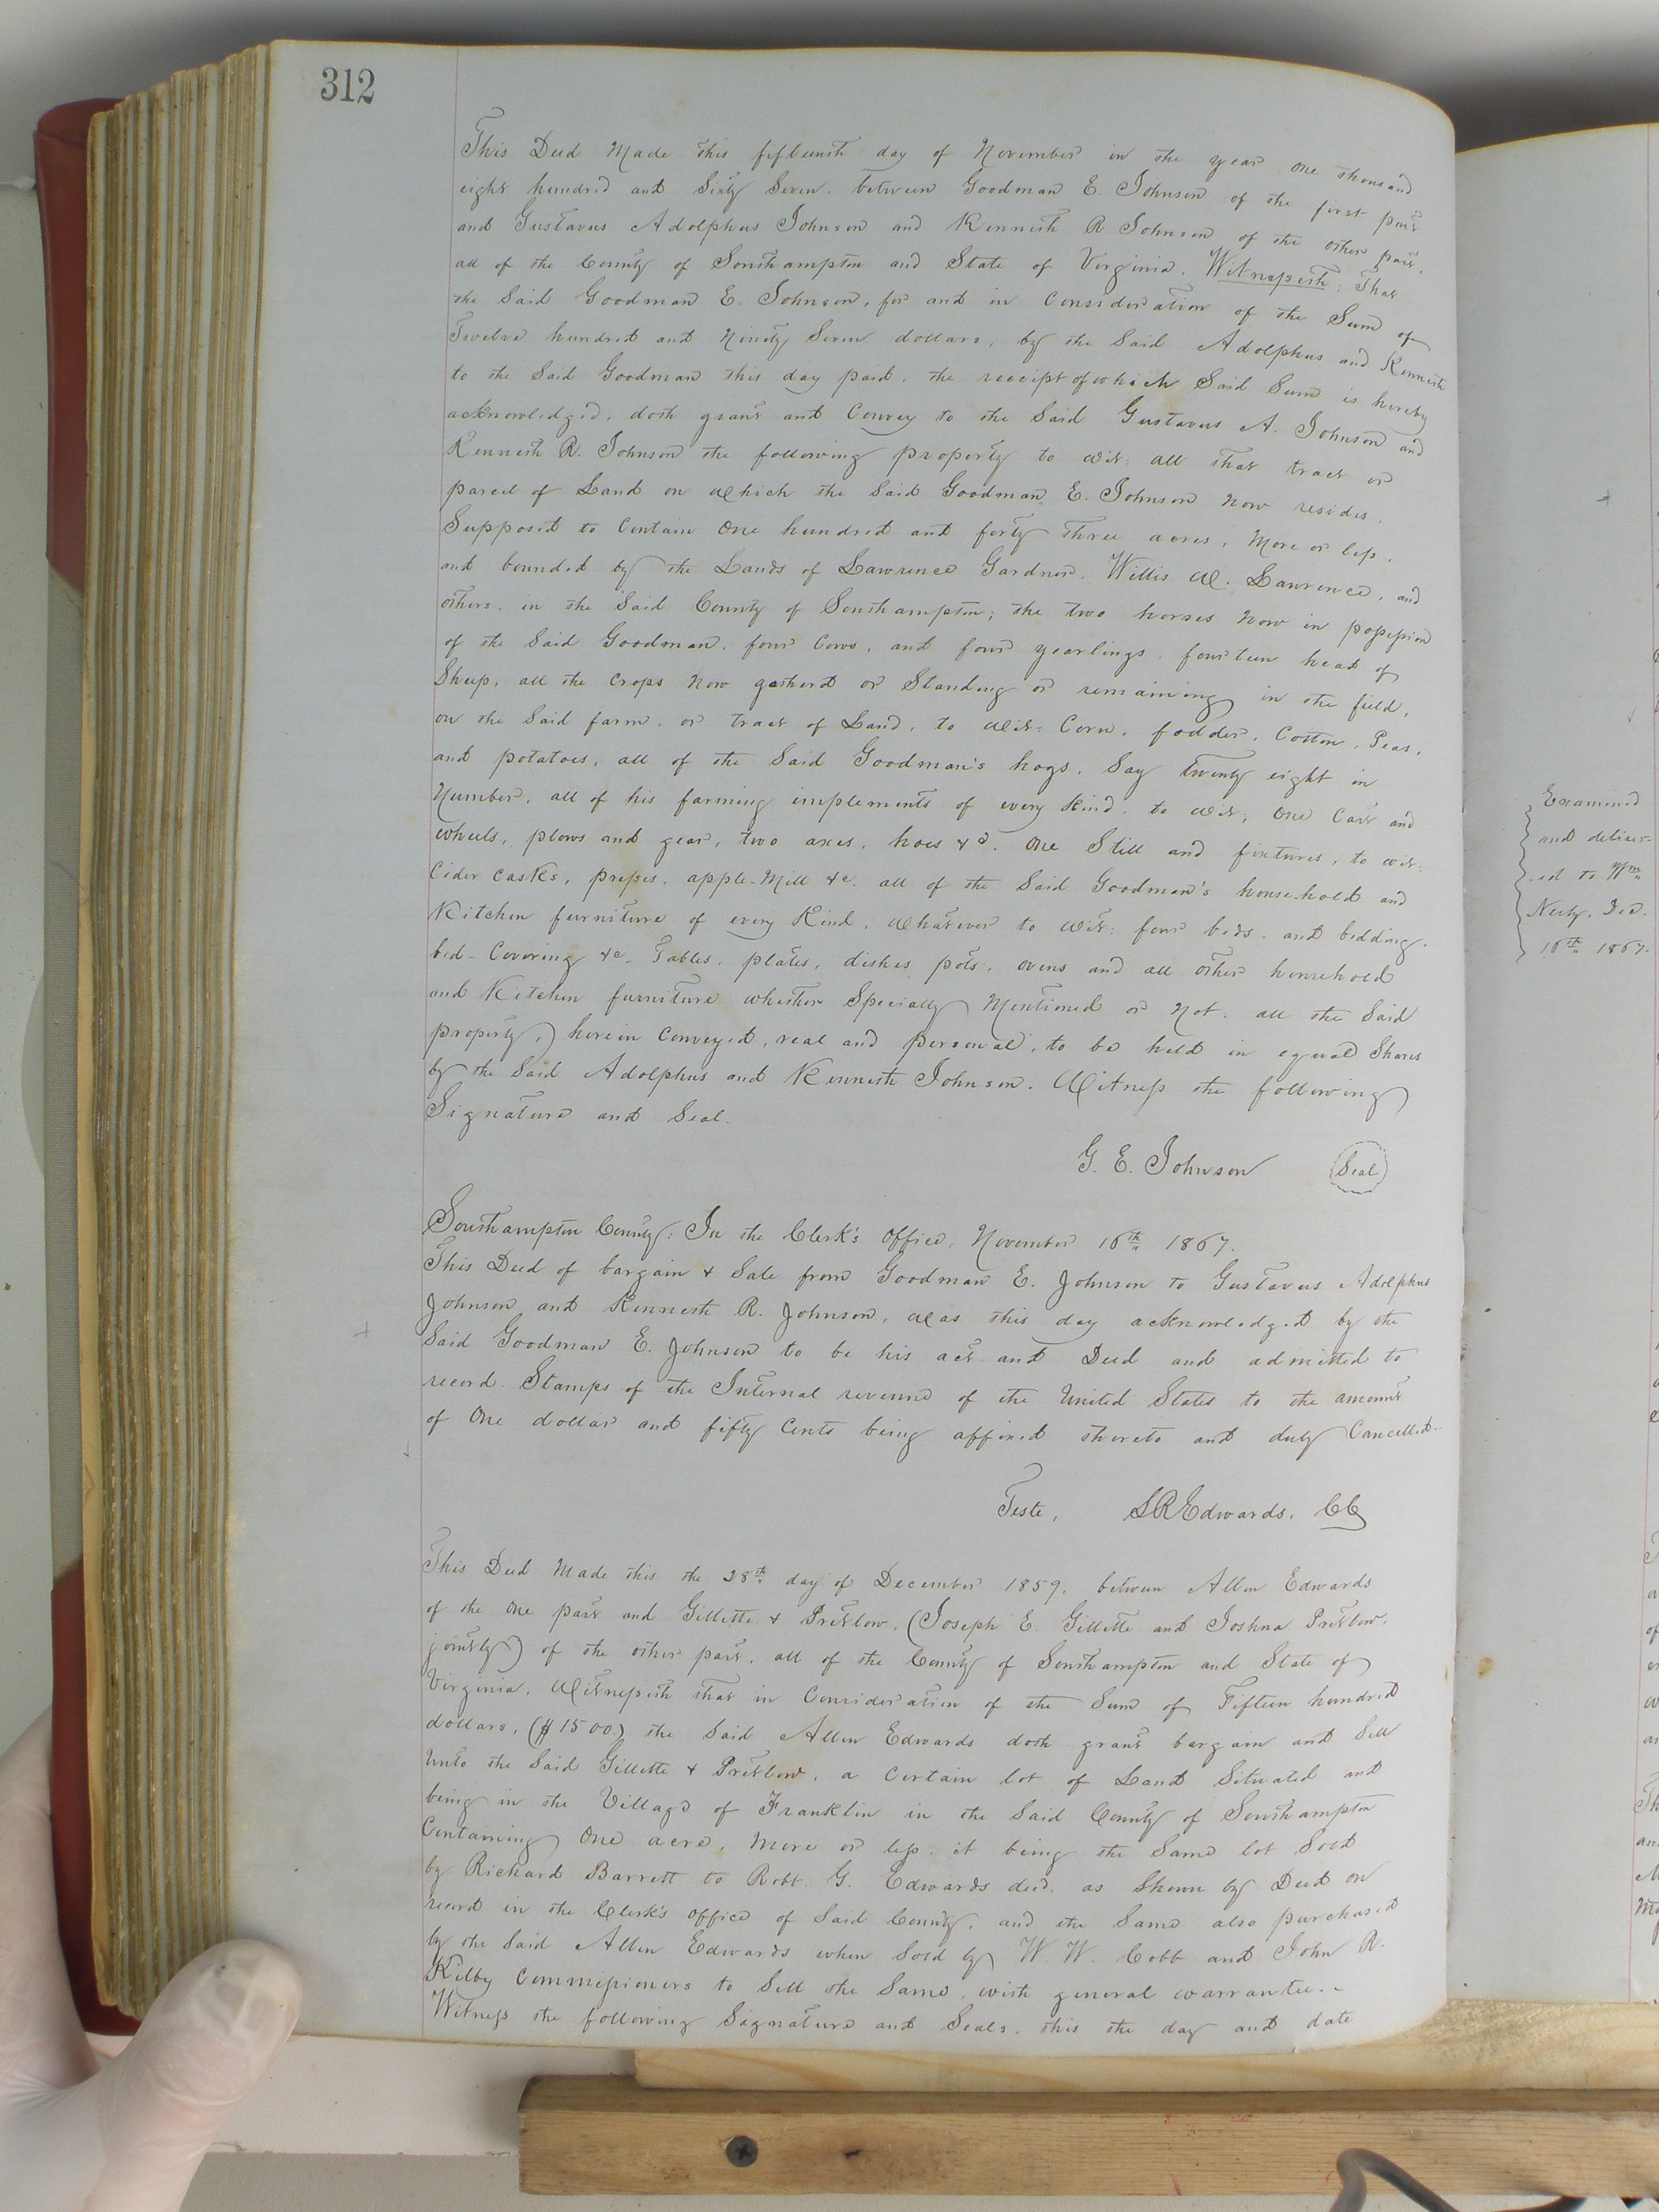 312
This Deed Made this fifteenth day of November in the year one thousand
eight hundred and Sixty Seven, between Goodman E. Johnson of the first part
and Gustavus Adolphus Johnson and Kenneth R. Johnson of the other part,
all of the County of Southampton and State of Virginia, Witnesseth: That
the Said Goodman E. Johnson, for and in Consideration of the Sum of
Twelve hundred and Ninety Seven dollars, by the Said Adolphus and Kenneth
to the Said Goodman this day paid, the receipt of which Said Sum is hereby
acknowledged, doth grant and Convey to the Said Gustavus A. Johnson and
Kenneth R. Johnson the following property to wit: all that tract or
parcel of Land on which the Said Goodman E. Johnson now resides,
Supposed to Contain One hundred and forty three acres, More or less,
and bounded by the Lands of Lawrence Gardner, Willis W. Lawrence, and
others, in the Said County of Southampton; the two horses now in possession
of the Said Goodman, four Cows, and four yearlings, fourteen head of
Sheep, all the Crops now gatherd or Standing or remaining in the field,
on the Said farm, or tract of Land, to wit: Corn, fodder, Cotton, Peas,
and potatoes, all of the Said Goodman's hogs, Say twenty eight in
Number, all of his farming implements of every Kind, to wit; One Cart and
wheels, plows and gear, two axes, hoes &c. One Still and fixtures, to wit:
Cider Casks, presses, apple-Mill &c. all of the Said Goodman's household and
Kitchen furniture of every Kind, Whatever to wit: four beds, and bedding,
bed-Covering &c. Tables, plates, dishes pots, ovens and all other household
and Kitchen furniture whether Specially Mentioned or Not: all the Said
property, herein Conveyed, real and personal, to be held in equal Shares
by the Said Adolphus and Kenneth Johnson. Witness the following
Signature and Seal.
G. E. Johnson (Seal)
Southampton County: In the Clerk's Office, November 16th 1867.
This Deed of bargain & Sale from Goodman E. Johnson to Gustavus Adolphus
Johnson and Kenneth R. Johnson, was this day acknowledged by the
Said Goodman E. Johnson to be his act and Deed and admitted to
record. Stamps of the Internal revenue of the United States to the amount
of One dollar and fifty Cents being affixed thereto and duly Cancelled.
Teste, LREdwards, CC
This Deed Made this the 28th day of December 1859, between Allen Edwards
of the One part and Gillette & Pretlow, (Joseph E. Gillette and Joshua Pretlow,
jointly) of the other part, all of the County of Southampton and State of
Virginia, Witnesseth that in Consideration of the Sum of Fifteen hundred
dollars, ($1500.) the Said Allen Edwards doth grant bargain and Sell
Unto the Said Gillette & Pretlow, a Certain lot of Land Situated and
being in the Village of Franklin in the Said County of Southampton
Containing One acre, More or less, it being the Same lot Sold
by Richard Barrett to Robt. G. Edwards decd. as Shown by Deed on
record in the Clerk's office of Said County, and the Same also purchased
by the Said Allen Edwards when Sold by W. W. Cobb and John R.
Kilby Commissioners to Sell the Same, with general warrantee.
Witness the following Signature and Seals, this the day and date
Examined
and deliver-
ed to Wm
16th 1867.